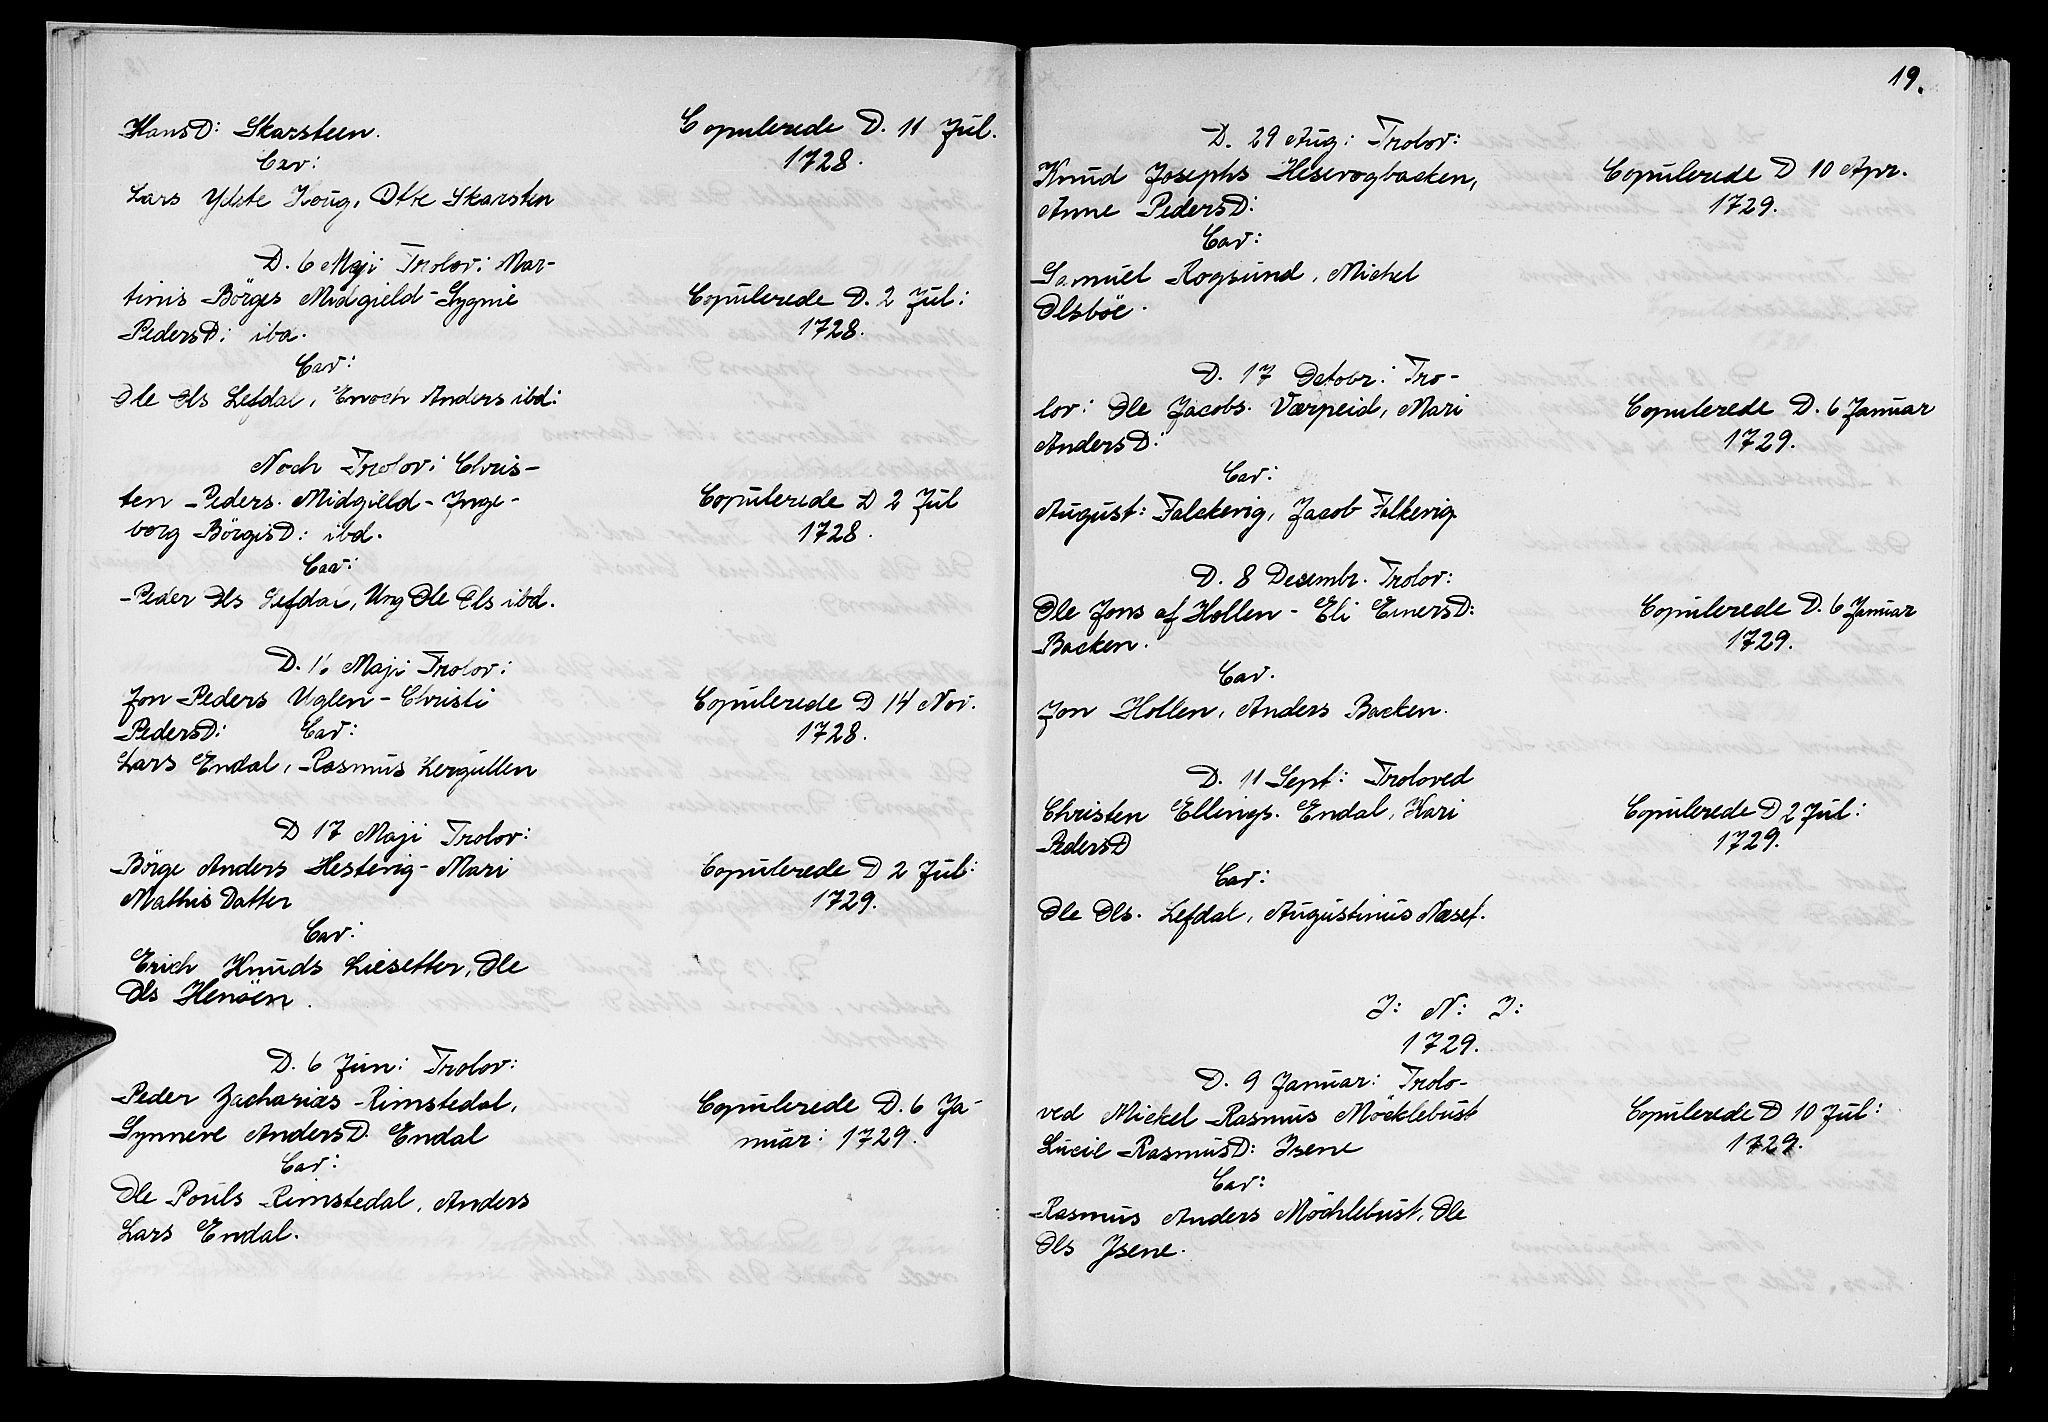 HansD: Skarsteen.
Cav:
Lars Ytste Houg, Otte Skarsten
Copulerede D. 11 Jul.
1728.
D. 6 Maji Trolov: Mar-
tinis Börges Midgield - Sygnie
PedersD: iba.
Cav:
Ole Ols Lefdal, Enoch Anders ibd:
Copulerede D. 2 Jul:
1728.
Noch Trolov: Chris-
ten Peders. Midgield - Inge-
borg BörgisD: ibd.
Cav:
Peder Ols Lefdal, Ung Ole Ols ibd.
Copulerede D 2 Jul
1728.
D. 16 Maji Trolov:
Jon Peders Uglen - Christi
PedersD: Cav:
Lars Endal, Rasmus Lergullen
Copulerede D 14 Nov.
1728.
D 17 Maji Trolov:
Börge Anders Hestevig - Mari
Mathis Datter
Cav:
Erich Knuds Liesetter, Ole
Ols Henöen.
Copulerede D 2 Jul:
1729.
D. 6 Jun: Trolov:
Peder Zacharias Rimstedal,
Synneve AndersD. Endal
Cav:
Ole Pouls Rimstedal, Anders
Lars Endal.
Copulerede D. 6 Ja-
nuar: 1729.
19.
D. 29 Aug: Trolov:
Knud Josephs Hesevogbacken,
Anne PedersD:
Cav:
Samuel Rogsund, Mickel
Olsböe.
Copulerede D 10 Apr.
1729.
D. 17 Octobr: Tro-
lov: Ole Jacobs. Værpeid, Mari
AndersD:
Cav:
August: Falckevig, Jacob Falkevig.
Copulerede D. 6 Januar
1729.
D. 8 Decembr. Trolov:
Ole Jons af Hollen - Eli EinersD:
Backen.
Cav.
Jon Hollen, Anders Backen.
Copulerede D. 6 Januar
1729.
D. 11 Sept: Troloved
Christen Ellings. Endal, Kari
PedersD
Cav:
Ole Ols. Lefdal, Augustinus Næsef.
Copulerede D 2 Jul:
1729.
J: N: J:
1729.
D. 9 Januar: Trolo-
ved Mickel Rasmus Möcklebust
Lucie RasmusD: Isene
Cav:
Rasmus Anders Möchlebust, Ole
Ols Isene.
Copulerede D 10 Jul:
1729.